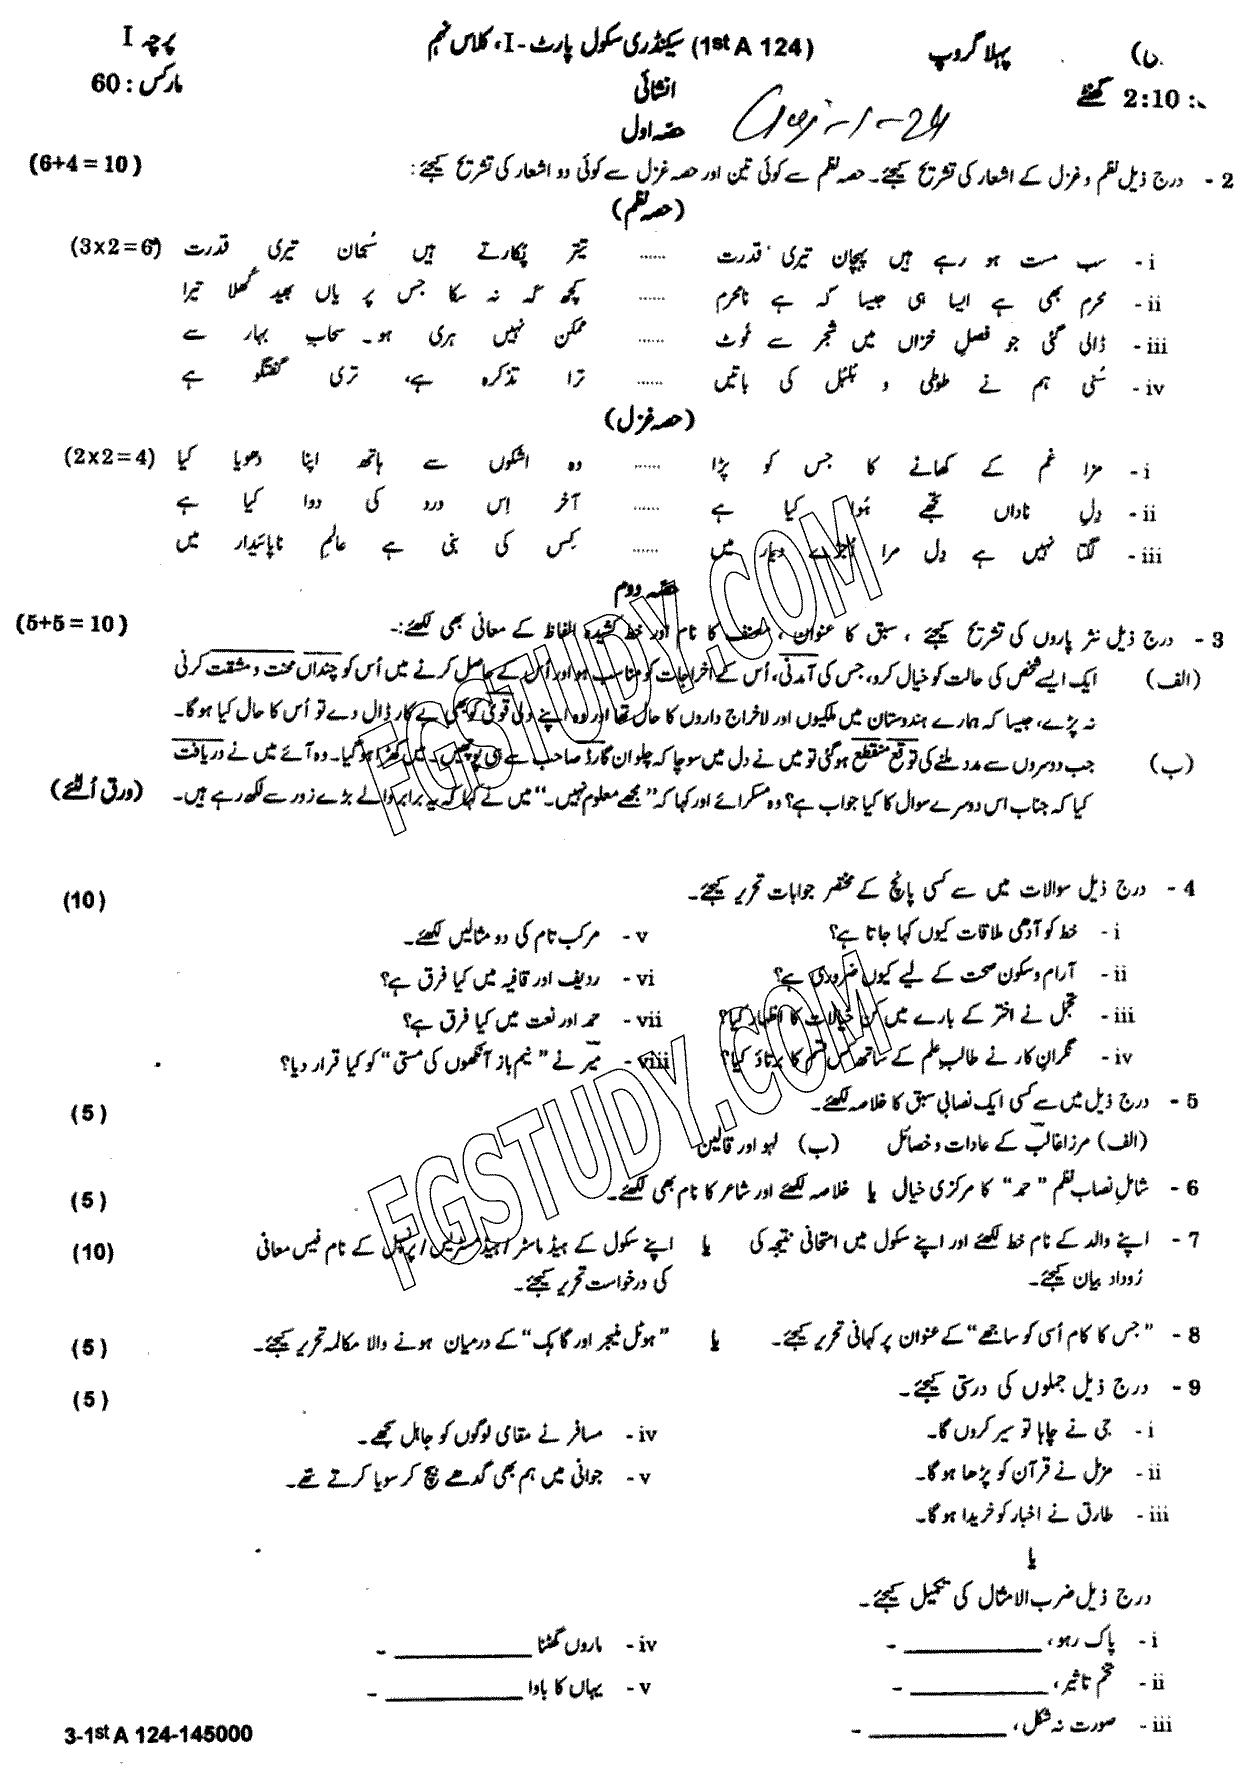 پرچہ I
(1st A 124) سیکنڈری سکول پارٹ -I، کلاس نہم
پہلا گروپ
مارکس : 60
انشائی
2:10 گھنٹے
حصہ اول
2 - درج ذیل نظم و غزل کے اشعار کی تشریح کیجئے۔ حصہ نظم سے کوئی تین اور حصہ غزل سے کوئی دو اشعار کی تشریح کیجئے: (6+4 = 10)
(حصہ نظم)
i - سب مست ہو رہے ہیں پہچان تیری قدرت ...... تیتر پکارتے ہیں سُبحان تیری قدرت (3x2=6)
ii - محرم بھی ہے ایسا ہی جیسا کہ ہے نامحرم ...... کچھ کہہ نہ سکا جس پر یاں بھید کُھلا تیرا
iii - ڈالی گئی جو فصلِ خزاں میں شجر سے ٹوٹ ...... ممکن نہیں ہری ہو۔ سحاب بہار سے
iv - سُنی ہم نے طوطی و بُلبُل کی باتیں ...... ترا تذکرہ ہے، تری گفتگو ہے
(حصہ غزل)
i - مزا غم کے کھانے کا جس کو پڑا ...... وہ اشکوں سے ہاتھ اپنا دھویا کیا (2x2=4)
ii - دلِ ناداں تجھے ہُوا کیا ہے ...... آخر اِس درد کی دوا کیا ہے
iii - لگتا نہیں ہے دل مرا اُجڑے دیار میں ...... کِس کی بنی ہے عالمِ ناپائیدار میں
حصہ دوم
3 - درج ذیل نثر پاروں کی تشریح کیجئے ، سبق کا عنوان، مصنف کا نام اور خط کشیدہ الفاظ کے معانی بھی لکھئے:- (5+5 = 10)
(الف) ایک ایسے شخص کی حالت کو خیال کرو، جس کی آمدنی، اُس کے اخراجات کو مناسب ہو اور اُس کے حاصل کرنے میں اُس کو چنداں محنت و مشقت کرنی
نہ پڑے، جیسا کہ ہمارے ہندوستان میں ملکیوں اور لاخراج داروں کا حال تھا اور وہ اپنے دلی قویٰ کو بھی بے کار ڈال دے تو اُس کا حال کیا ہوگا۔
(ب) جب دوسروں سے مدد ملنے کی توقع منقطع ہوگئی تو میں نے دل میں سوچا کہ چلو ان گارڈ صاحب سے ہی پوچھیں۔ میں کھڑا ہوگیا۔ وہ آئے میں نے دریافت
کیا کہ جناب اس دوسرے سوال کا کیا جواب ہے؟ وہ مسکرائے اور کہا کہ "مجھے معلوم نہیں۔" میں نے کہا کہ یہ برابر والے بڑے زور سے لکھ رہے ہیں۔ (ورق اُلٹئے)
4 - درج ذیل سوالات میں سے کسی پانچ کے مختصر جوابات تحریر کیجئے۔ (10)
i - خط کو آدھی ملاقات کیوں کہا جاتا ہے؟ v - مرکب تام کی دو مثالیں لکھئے۔
ii - آرام و سکون صحت کے لیے کیوں ضروری ہے؟ vi - ردیف اور قافیہ میں کیا فرق ہے؟
iii - تجمل نے اختر کے بارے میں کن خیالات کا اظہار کیا؟ vii - حمد اور نعت میں کیا فرق ہے؟
iv - نگران کار نے طالب علم کے ساتھ کس قسم کا برتاؤ کیا؟ viii - میر نے "نیم باز آنکھوں کی مستی" کو کیا قرار دیا؟
5 - درج ذیل میں سے کسی ایک نصابی سبق کا خلاصہ لکھئے۔ (5)
(الف) مرزا غالب کے عادات و خصائل (ب) لہو اور قالین
6 - شاملِ نصاب نظم "حمد" کا مرکزی خیال یا خلاصہ لکھئے اور شاعر کا نام بھی لکھئے۔ (5)
7 - اپنے والد کے نام خط لکھئے اور اپنے سکول میں امتحانی نتیجہ کی یا اپنے سکول کے ہیڈ ماسٹر/ہیڈ مسٹریس/پرنسپل کے نام فیس معافی (10)
رُوداد بیان کیجئے۔ کی درخواست تحریر کیجئے۔
8 - "جس کا کام اُسی کو ساجھے" کے عنوان پر کہانی تحریر کیجئے۔ یا "ہوٹل منیجر اور گاہک" کے درمیان ہونے والا مکالمہ تحریر کیجئے۔ (5)
9 - درج ذیل جملوں کی درستی کیجئے۔ (5)
i - جی نے چاہا تو سیر کروں گا۔ iv - مسافر نے مقامی لوگوں کو جاہل سمجھے۔
ii - مزمل نے قرآن کو پڑھا ہوگا۔ v - جوانی میں ہم بھی گدھے بیچ کر سویا کرتے تھے۔
iii - طارق نے اخبار کو خریدا ہوگا۔
یا
درج ذیل ضرب الامثال کی تکمیل کیجئے۔
i - پاک رہو، ____________ - iv - ماروں گھٹنا ____________ -
ii - تخم تاثیر، ____________ - v - یہاں کا باوا ____________ -
iii - صورت نہ شکل، ____________ -
3-1st A 124-145000
FGSTUDY.COM
FGSTUDY.COM